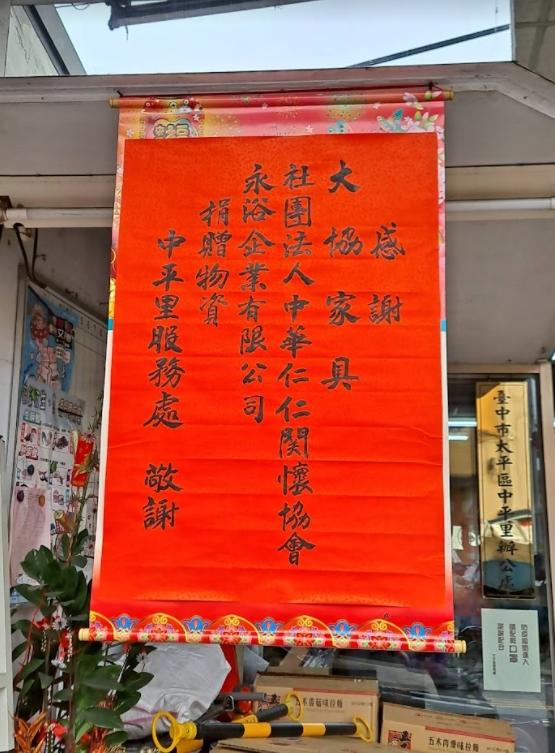 感謝
大協家具
社團法人中華仁仁關懷協會
永浴企業有限公司
捐贈物資
中平里服務處 敬謝
臺中市太平區中平里辦公處
五木香菇味拉麵